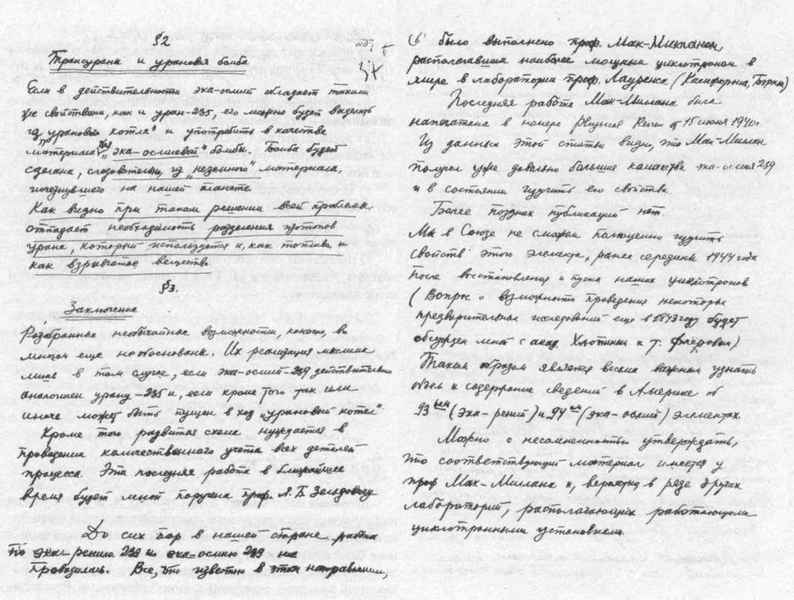 §2
Трансураны и урановая бомба
Если в действительности эка-осмий обладает такими
же свойствами, как и уран-235, его можно будет выделить
из „уранового котла" и употребить в качестве
материала для „эка-осмиевой" бомбы. Бомба будет
сделана, следовательно, из „неземного" материала,
исчезнувшего на нашей планете.
Как видно при таком решении всей проблемы
отпадает необходимость разделения изотопов
урана, который используется и, как топливо и
как взрывчатое вещество
§3.
Заключение
Разобранные необычайные возможности, конечно, во
многом еще не обоснованы. Их реализация мыслима
лишь в том случае, если эка-осмий-239 действительно
аналогичен урану-235 и, если кроме того так или
иначе может быть пущен в ход „урановый котел"
Кроме того развитая схема нуждается в
проведении количественного учета всех деталей
процесса. Эта последняя работа в ближайшее
время будет мной поручена проф. Я. Б. Зельдовичу
До сих пор в нашей стране работа
по эка-рению 239 и эка-осмию 239 не
проводилась. Все, что известно в этом направлении,
было выполнено проф. Мак-Милланом,
располагавшим наиболее мощным циклотроном в
мире в лаборатории проф. Лауренса (Калифорния, Беркли)
Последняя работа Мак-Милана была
напечатана в номере Physical Review от 15 июня 1940г.
Из данных этой статьи видно, что Мак-Милан
получил уже довольно большие количества эка-осмия 239
и в состоянии изучить его свойства
Более поздних публикаций нет.
Мы в Союзе не сможем полноценно изучить
свойств этого элемента, ранее середины 1944 года
после восстановления и пуска наших циклотронов
(Вопрос о возможности проведения некоторых
предварительных исследований еще в 1943 году будет
обсужден мной с акад. Хлопиным и т. Флеровым)
Таким образом является весьма важным узнать
объем и содержание сведений в Америке об
93ем (эка-рений) и 94ом (эка-осмий) элементах.
Можно с несомненностью утверждать,
что соответствующий материал имеется у
проф Мак-Милана и, вероятно, в ряде других
лабораторий, располагающих работающими
циклотронными установками.